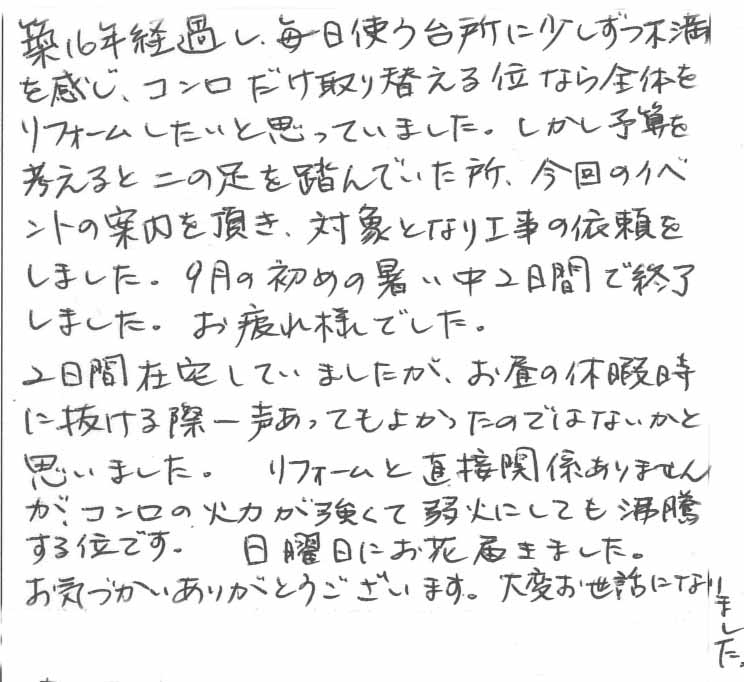 築16年経過し、毎日使う台所に少しずつ不満
を感じ、コンロだけ取り替える位なら全体を
リフォームしたいと思っていました。しかし予算を
考えると二の足を踏んでいた所、今回のイベ
ントの案内を頂き、対象となり工事の依頼を
しました。9月の初めの暑い中2日間で終了
しました。お疲れ様でした。
2日間在宅していましたが、お昼の休暇時
に抜ける際一声あってもよかったのではないかと
思いました。 リフォームと直接関係ありません
が、コンロの火力が強くて弱火にしても沸騰
する位です。 日曜日にお花届きました。
お気づかいありがとうございます。大変お世話になり
ました。